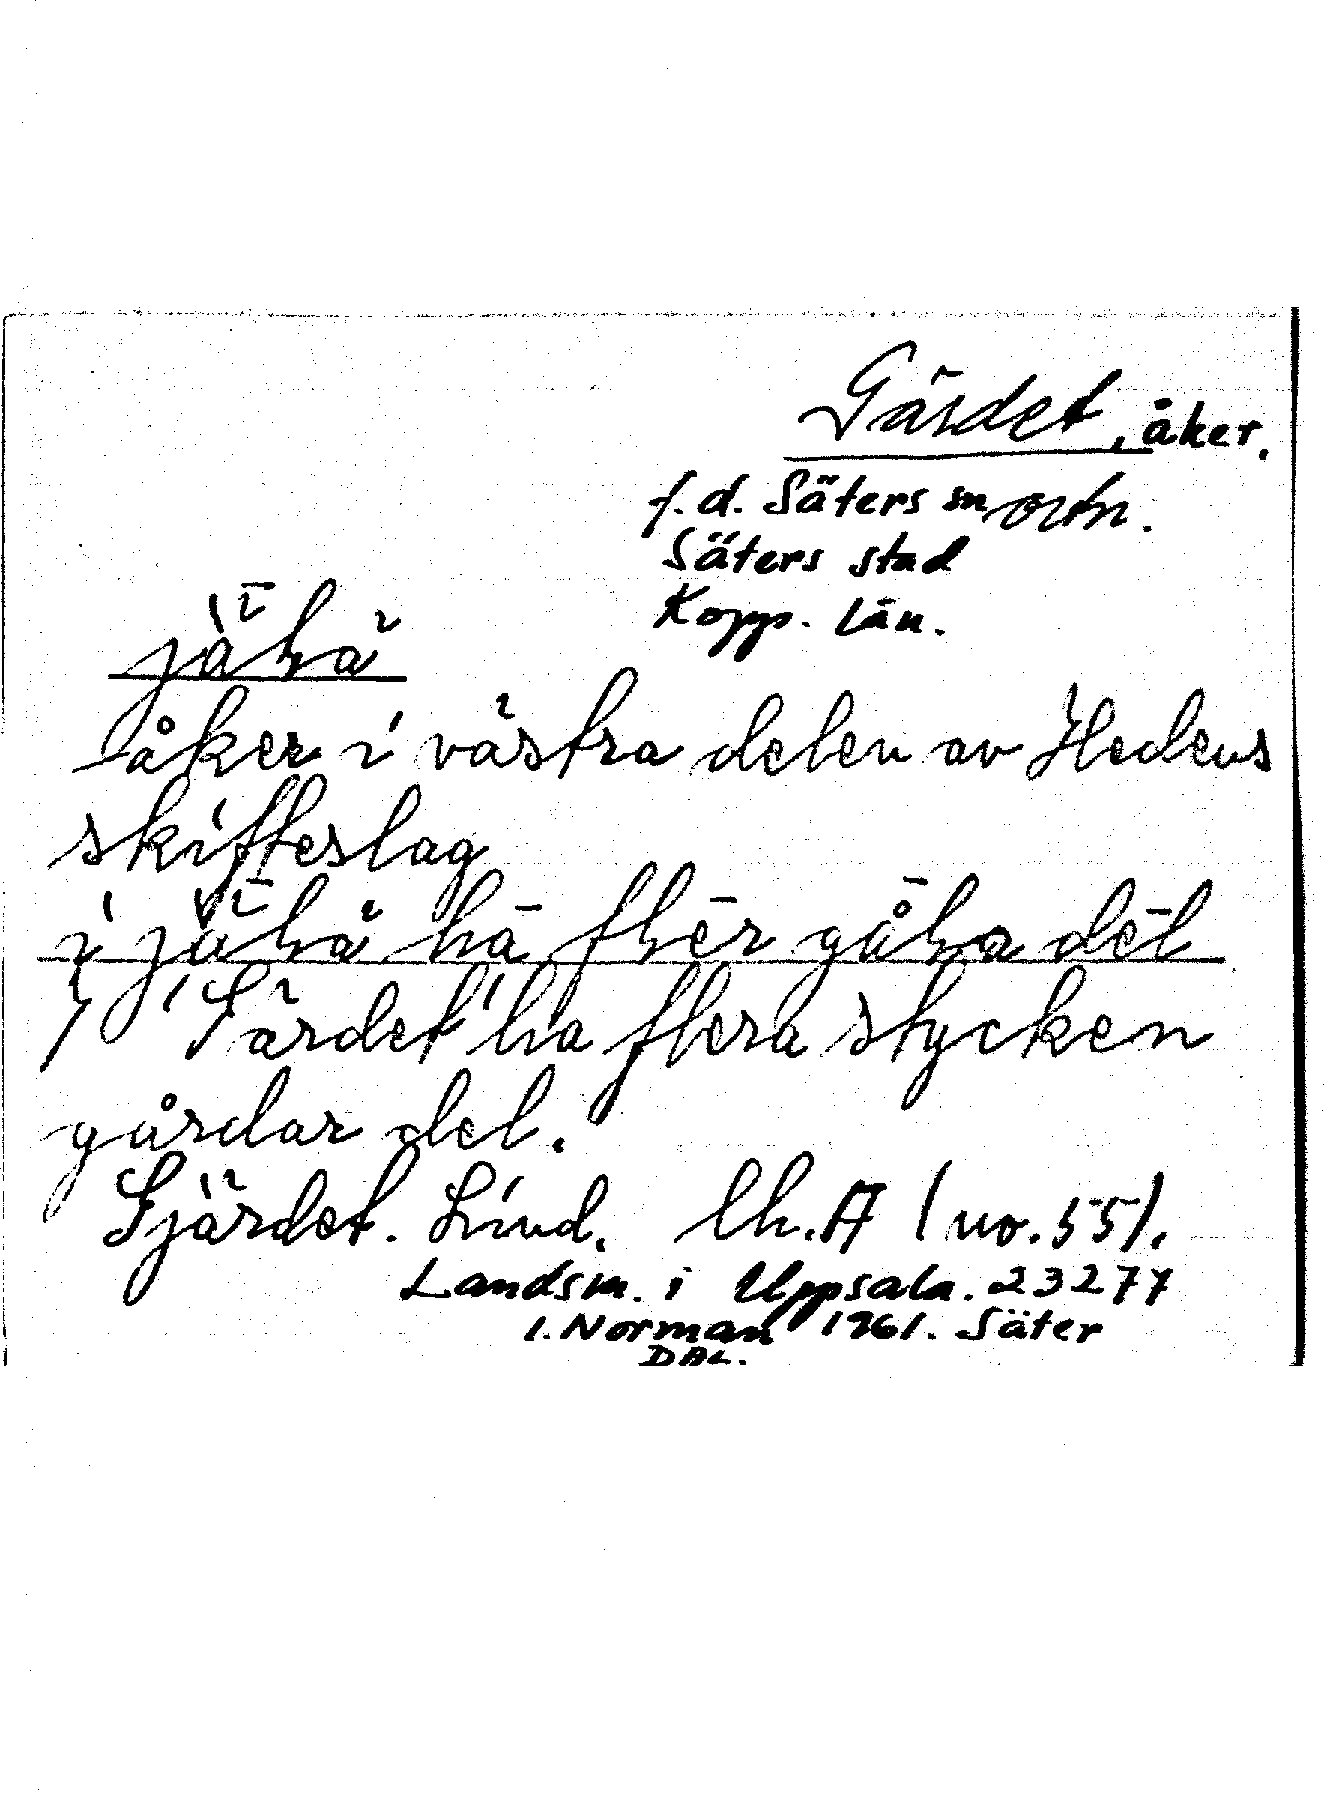 Gärdet, åker.
f.d. Säters sn och.
Säters stad
Kopp. län.
jä̀ḷä
åker i västra delen av Hedens
skifteslag
i jä̀ḷä ha flēr gå̄ḷa dēl
I "Gärdet" ha flera stycken
gårdar del.
Gjärdet. Lind. lh. A (no. 55).
Landsm. i Uppsala. 23277
I. Norman 1961. Säter
DAL.